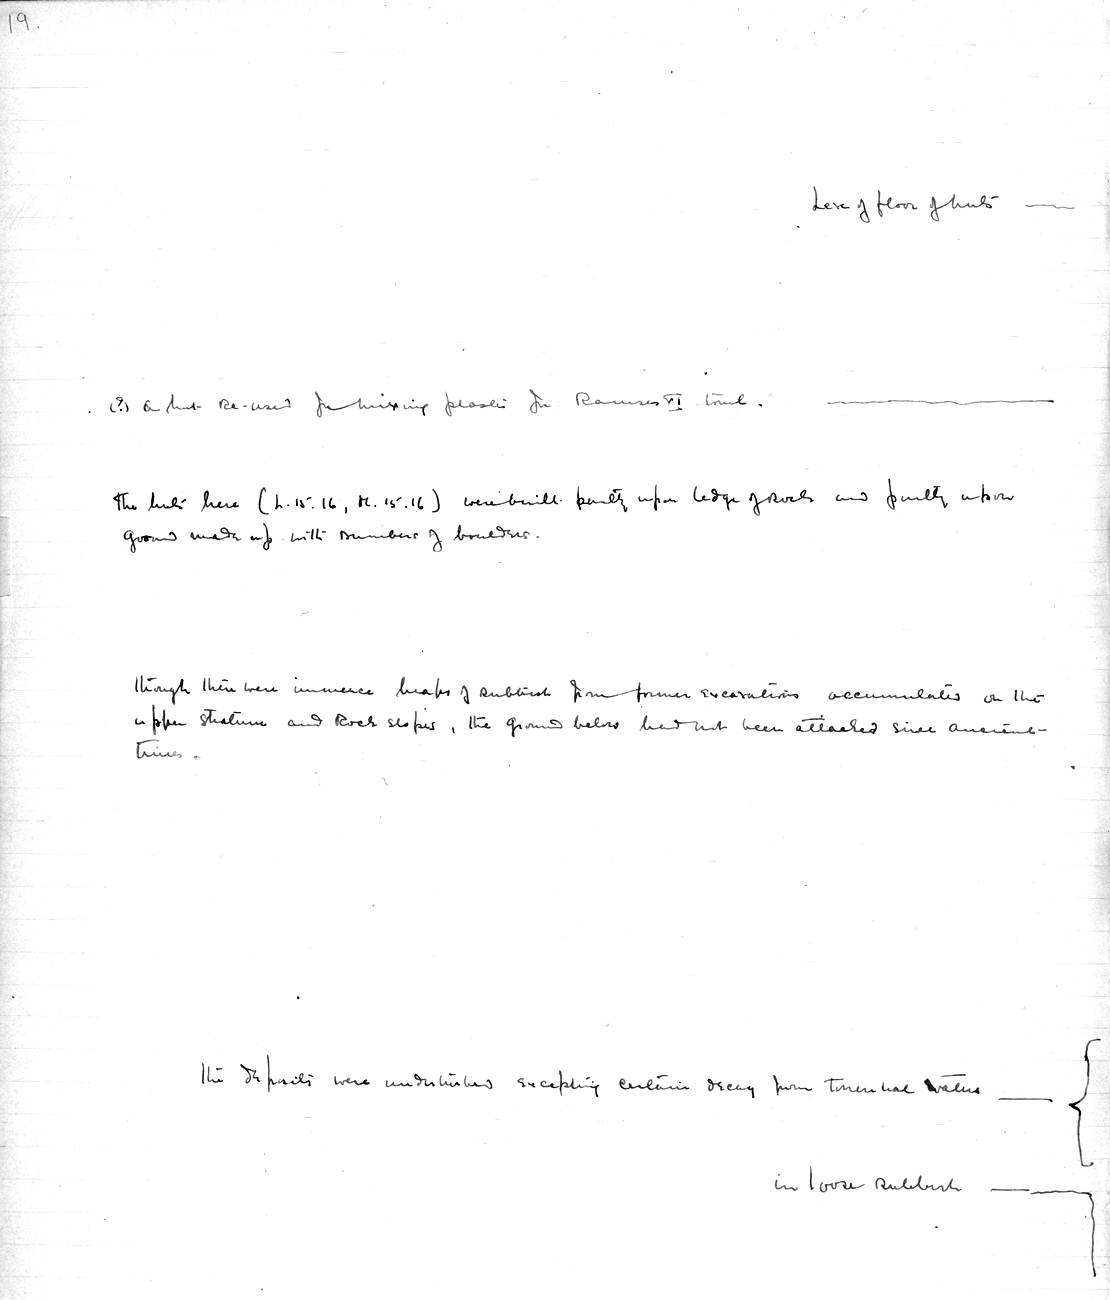 19.
Leve of floor of huts
(?) a hut re-used for mixing plaster for Ramses VI tomb.
The huts here (L. 15. 16, M. 15. 16) were built partly upon ledge of rock and partly upon
ground made up with numbers of boulders.
Though there were immence heaps of rubbish from former excavations accumulated on the
upper stratum and rock slopes, the ground below had not been attacked since ancient
times.
The deposits were undisturbed excepting certain decay from torrential waters
in loose rubbish